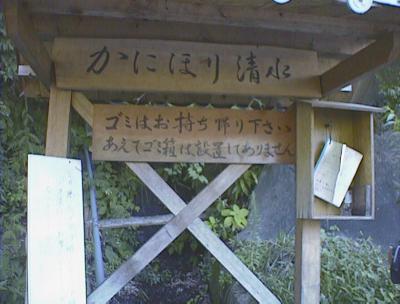 かにほり清水
ゴミはお持ち帰り下さい
あえてゴミ箱は設置してありません